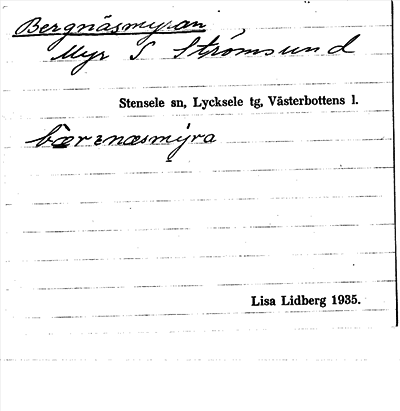 Bergnäsmyran
Myr S Strömsund
Stensele sn, Lycksele tg, Västerbottens l.
Lisa Lidberg 1935.